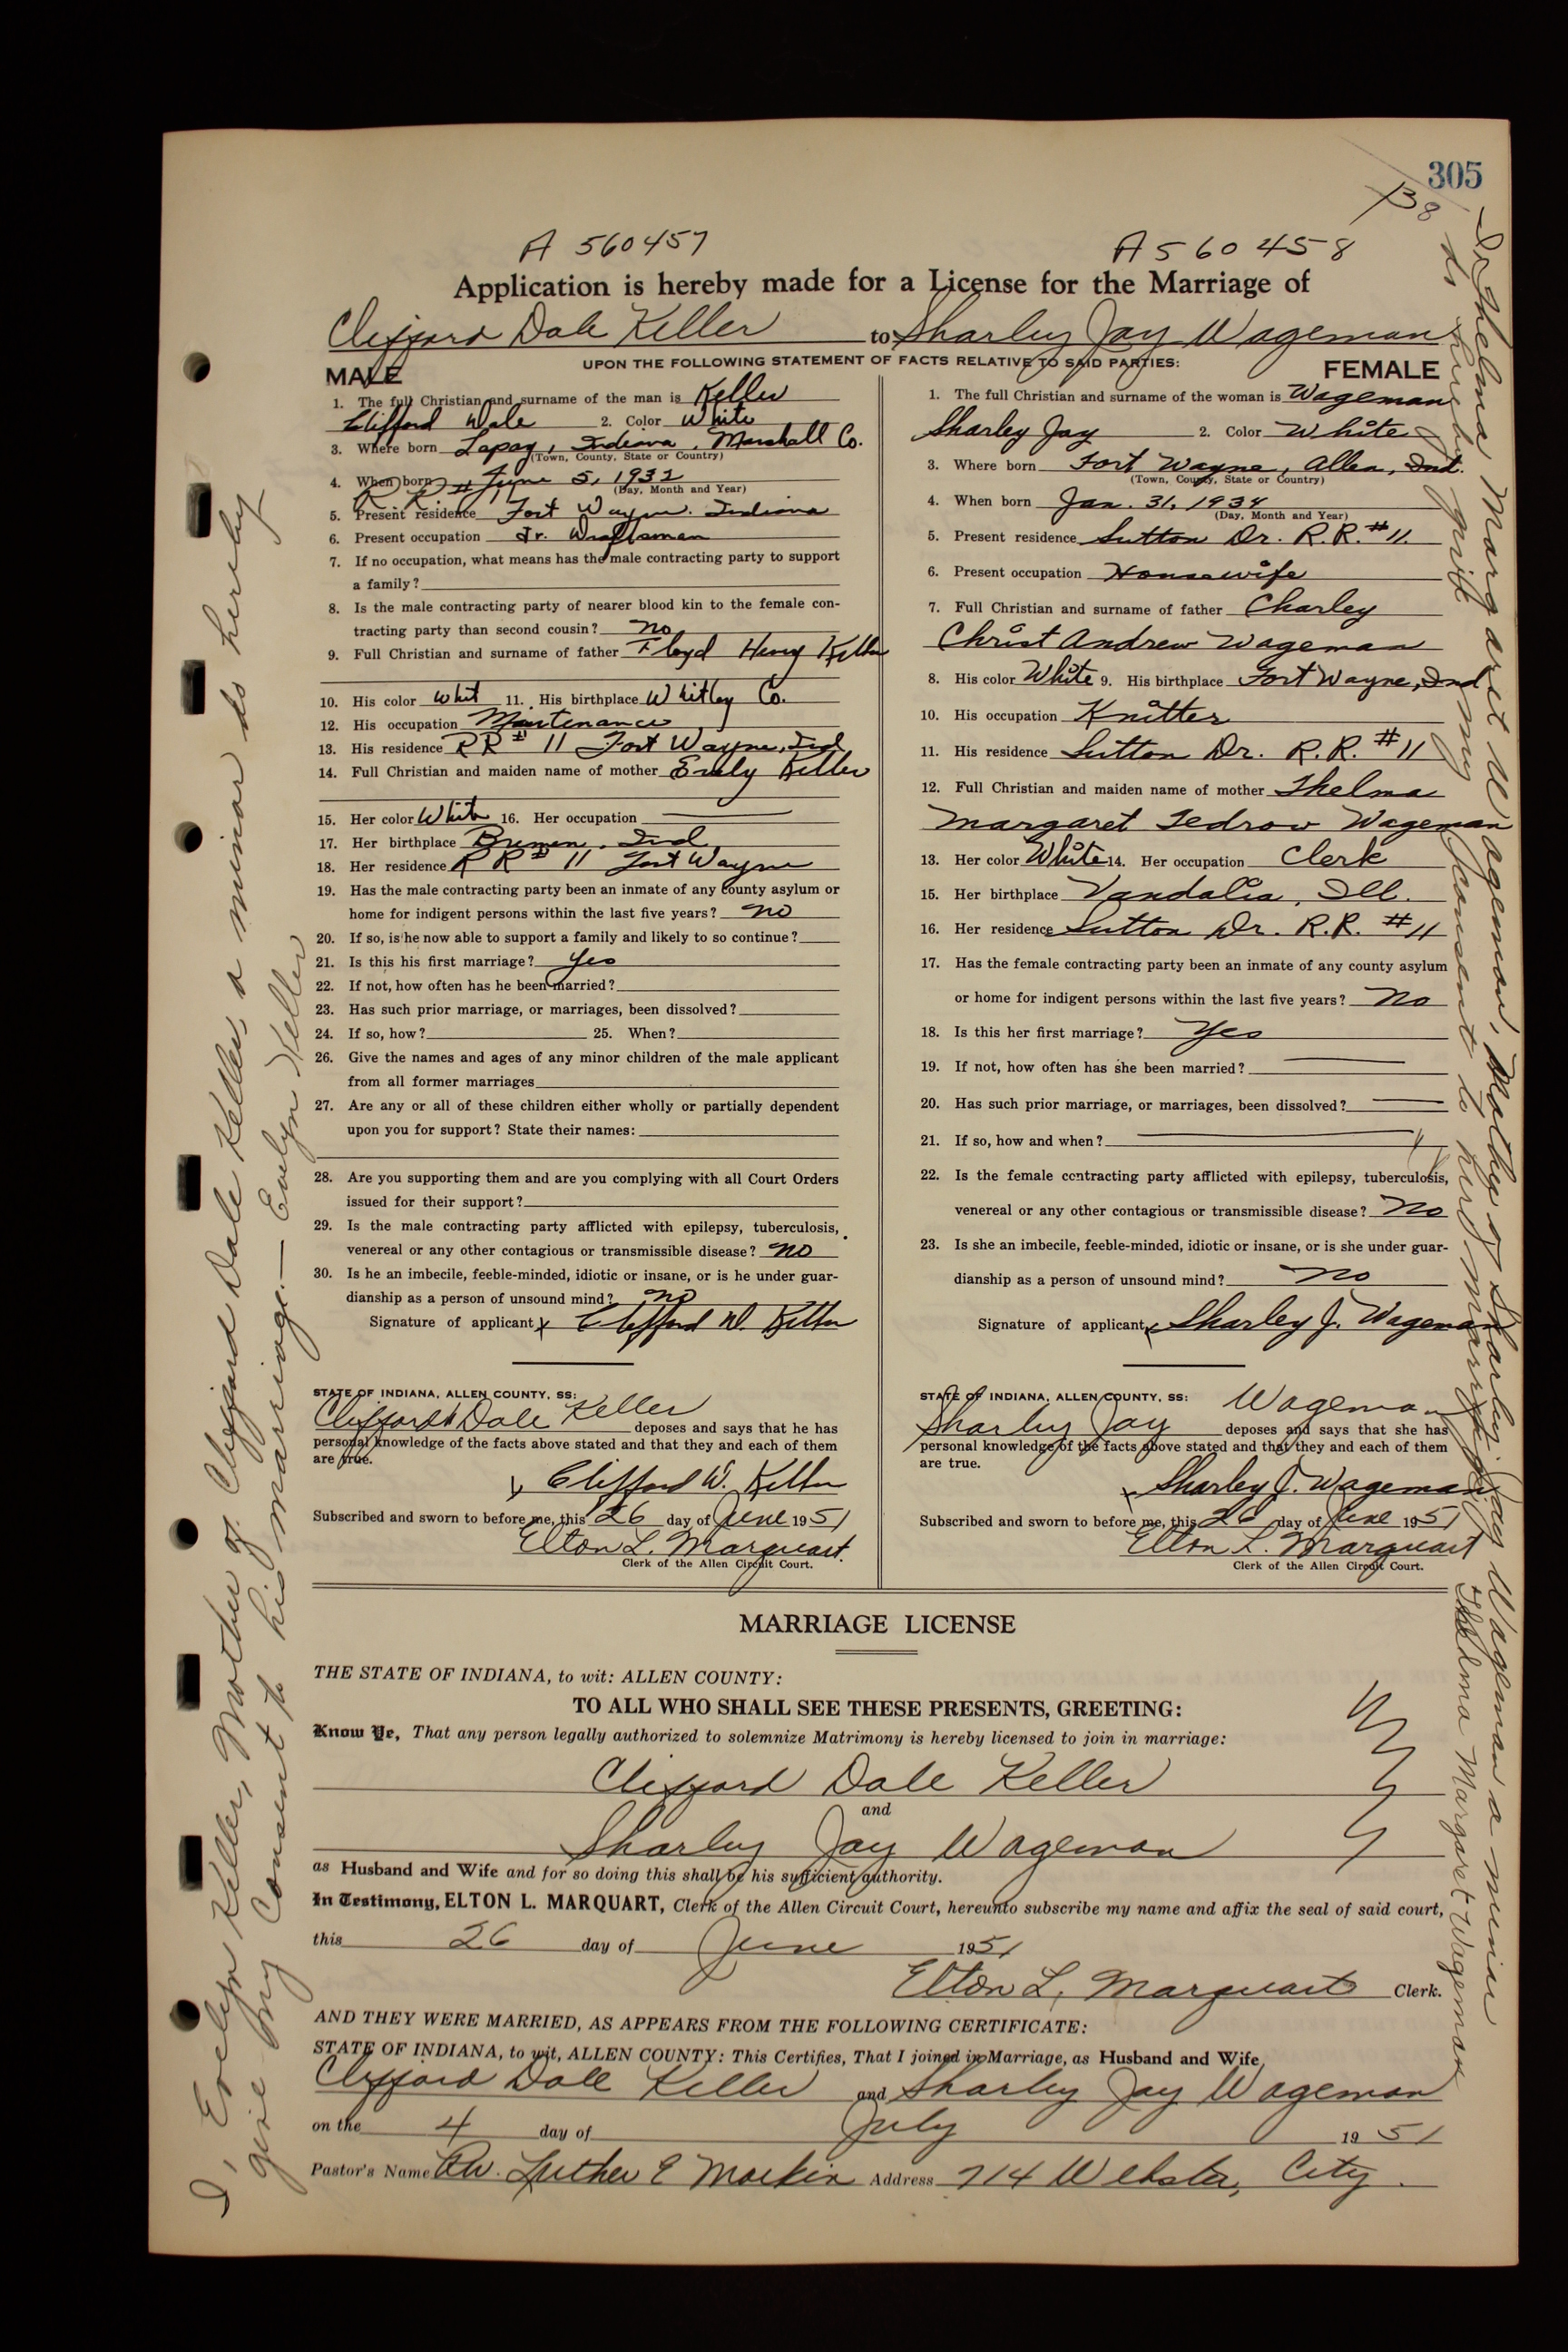 305
A 560457 A 560458
Application is hereby made for a License for the Marriage of
Clifford Dale Keller to Sharley Jay Wageman
UPON THE FOLLOWING STATEMENT OF FACTS RELATIVE TO SAID PARTIES:
MALE
1. The full Christian and surname of the man is Keller
Clifford Dale 2. Color White
3. Where born Lapaz, Indiana, Marshall Co.
(Town, County, State or Country)
4. When born June 5, 1932
(Day, Month and Year)
R R # 11
5. Present residence Fort Wayne. Indiana
6. Present occupation Jr. Draftsman
7. If no occupation, what means has the male contracting party to support
a family?
8. Is the male contracting party of nearer blood kin to the female con-
tracting party than second cousin? no
9. Full Christian and surname of father Floyd Henry Keller
10. His color Whit 11. His birthplace Whitley Co.
12. His occupation Maintenance
13. His residence RR # 11 Fort Wayne, Ind
14. Full Christian and maiden name of mother Keller
15. Her color White 16. Her occupation
17. Her birthplace Bremen, Ind
18. Her residence R R # 11 Fort Wayne
19. Has the male contracting party been an inmate of any county asylum or
home for indigent persons within the last five years? no
20. If so, is he now able to support a family and likely to so continue?
21. Is this his first marriage? yes
22. If not, how often has he been married?
23. Has such prior marriage, or marriages, been dissolved?
24. If so, how? 25. When?
26. Give the names and ages of any minor children of the male applicant
from all former marriages
27. Are any or all of these children either wholly or partially dependent
upon you for support? State their names:
28. Are you supporting them and are you complying with all Court Orders
issued for their support?
29. Is the male contracting party afflicted with epilepsy, tuberculosis,
venereal or any other contagious or transmissible disease? no
30. Is he an imbecile, feeble-minded, idiotic or insane, or is he under guar-
dianship as a person of unsound mind? no
Signature of applicant x Clifford D. Keller
STATE OF INDIANA, ALLEN COUNTY, SS:
Clifford Dale Keller deposes and says that he has
personal knowledge of the facts above stated and that they and each of them
are true.
x Clifford D. Keller
Subscribed and sworn to before me, this 26 day of June 1951
Elton L. Marquart.
Clerk of the Allen Circuit Court.
FEMALE
1. The full Christian and surname of the woman is Wageman
Sharley Jay 2. Color White
3. Where born Fort Wayne, Allen, Ind.
(Town, County, State or Country)
4. When born Jan. 31, 1934
(Day, Month and Year)
5. Present residence Sutton Dr. R.R. # 11.
6. Present occupation Housewife
7. Full Christian and surname of father Charley
Christ Andrew Wageman
8. His color White 9. His birthplace Fort Wayne, Ind
10. His occupation Knitter
11. His residence Sutton Dr. R.R. # 11
12. Full Christian and maiden name of mother Thelma
Margaret Tedrow Wageman
13. Her color White 14. Her occupation Clerk
15. Her birthplace Vandalia, Ill.
16. Her residence Sutton Dr. R.R. # 11
17. Has the female contracting party been an inmate of any county asylum
or home for indigent persons within the last five years? no
18. Is this her first marriage? Yes
19. If not, how often has she been married?
20. Has such prior marriage, or marriages, been dissolved?
21. If so, how and when?
22. Is the female contracting party afflicted with epilepsy, tuberculosis,
venereal or any other contagious or transmissible disease? No
23. Is she an imbecile, feeble-minded, idiotic or insane, or is she under guar-
dianship as a person of unsound mind? no
Signature of applicant x Sharley J. Wageman
STATE OF INDIANA, ALLEN COUNTY, SS:
Sharley Jay Wageman deposes and says that she has
personal knowledge of the facts above stated and that they and each of them
are true.
x Sharley J. Wageman
Subscribed and sworn to before me, this 26 day of June 1951
Elton L. Marquart
Clerk of the Allen Circuit Court.
MARRIAGE LICENSE
THE STATE OF INDIANA, to wit: ALLEN COUNTY:
TO ALL WHO SHALL SEE THESE PRESENTS, GREETING:
Know Ye, That any person legally authorized to solemnize Matrimony is hereby licensed to join in marriage:
Clifford Dale Keller
and
Sharley Jay Wageman
as Husband and Wife and for so doing this shall be his sufficient authority.
In Testimony, ELTON L. MARQUART, Clerk of the Allen Circuit Court, hereunto subscribe my name and affix the seal of said court,
this 26 day of June 1951
Elton L. Marquart Clerk.
AND THEY WERE MARRIED, AS APPEARS FROM THE FOLLOWING CERTIFICATE:
STATE OF INDIANA, to wit, ALLEN COUNTY: This Certifies, That I joined in Marriage, as Husband and Wife,
Clifford Dale Keller and Sharley Jay Wageman
on the 4 day of July 1951
Pastor's Name Rev. Luther E Address 714 Webster, City.
I, Evelyn Keller, Mother of Clifford Dale Keller, a minor do hereby
give my Consent to his marriage. — Evelyn Keller
I, Thelma Margaret Wageman, Mother of Sharley Jay Wageman a minor
do hereby give my consent to her marriage.
Thelma Margaret Wageman